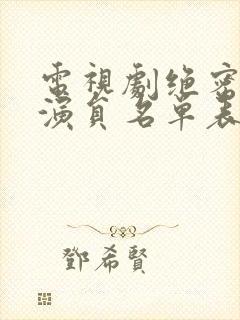 電視劇绝密
演員名單表
鄧希賢